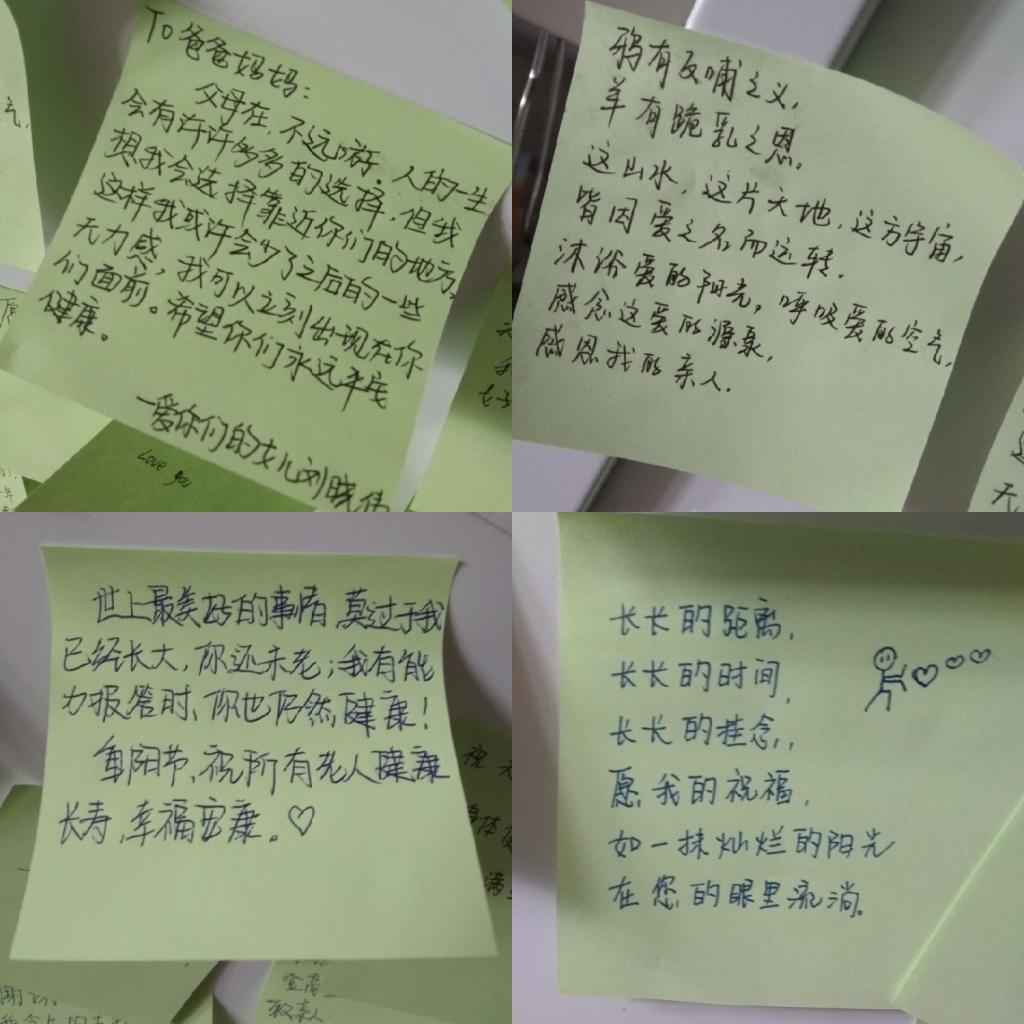 To爸爸妈妈:
父母在,不远游。人的一生
会有许许多多的选择,但我
想我会选择靠近你们的地方。
这样我或许会少了之后的一些
无力感,我可以立刻出现在你
们面前。希望你们永远平安
健康。
—爱你们的女儿刘晓伟
Love you
鸦有反哺之义,
羊有跪乳之恩。
这山水,这片大地,这方宇宙,
皆因爱之名而运转.
沐浴爱的阳光,呼吸爱的空气,
感念这爱的源泉,
感恩我的亲人.
世上最美好的事情,莫过于我
已经长大,你还未老;我有能
力报答时,你也仍然健康!
重阳节,祝所有老人健康
长寿,幸福安康。♡
长长的距离,
长长的时间,
长长的挂念,,
愿我的祝福,
如一抹灿烂的阳光
在您的眼里流淌。